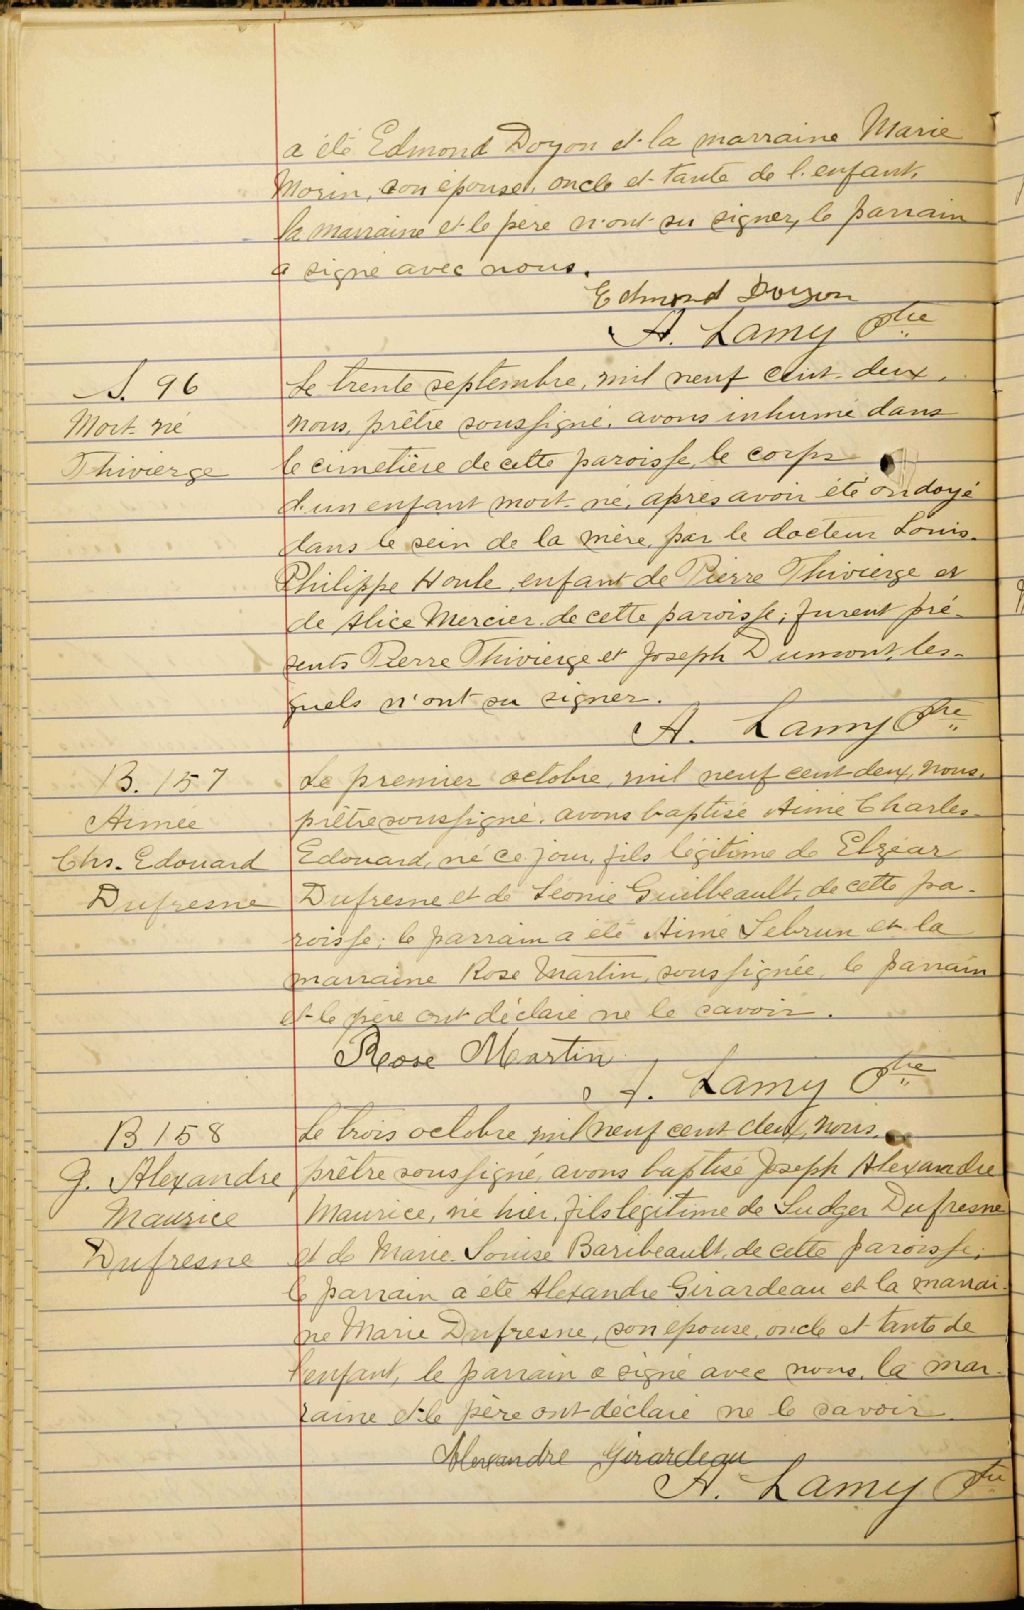 a été Edmond Doyon et la marraine Marie
Morin, son épouse, oncle et tante de l'enfant,
la marraine et le père n'ont su signer, le parrain
a signé avec nous.
Edmond Doyon
A. Lamy Ptre
S. 96
Mort-né
Thivierge
Le trente septembre, mil neuf cent-deux,
nous, prêtre soussigné, avons inhumé dans
le cimetière de cette paroisse, le corps
d'un enfant mort-né, après avoir été ondoyé
dans le sein de la mère, par le docteur Louis-
Philippe Houle, enfant de Pierre Thivierge et
de Alice Mercier de cette paroisse; furent pré-
sents Pierre Thivierge et Joseph Dumont, les-
quels n'ont su signer.
A. Lamy Ptre
B. 157
Aimée
Chs. Edouard
Dufresne
Le premier octobre, mil neuf cent-deux, nous,
prêtre soussigné, avons baptisé Aimé Charles-
Edouard, né ce jour, fils légitime de Elzéar
Dufresne et de Léonie Guilbeault, de cette pa-
roisse; le parrain a été Aimé Lebrun et la
marraine Rose Martin, soussignée, le parrain
et le père ont déclaré ne le savoir.
Rose Martin
A. Lamy Ptre
B 158
J. Alexandre
Maurice
Dufresne
Le trois octobre mil neuf cent deux, nous,
prêtre soussigné, avons baptisé Joseph Alexandre
Maurice, né hier, fils légitime de Ludger Dufresne
et de Marie-Louise Baribeault, de cette paroisse;
le parrain a été Alexandre Girardeau et la marrai-
ne Marie Dufresne, son épouse, oncle et tante de
l'enfant, le parrain a signé avec nous, la mar-
raine et le père ont déclaré ne le savoir.
Alexandre Girardeau
A. Lamy Ptre